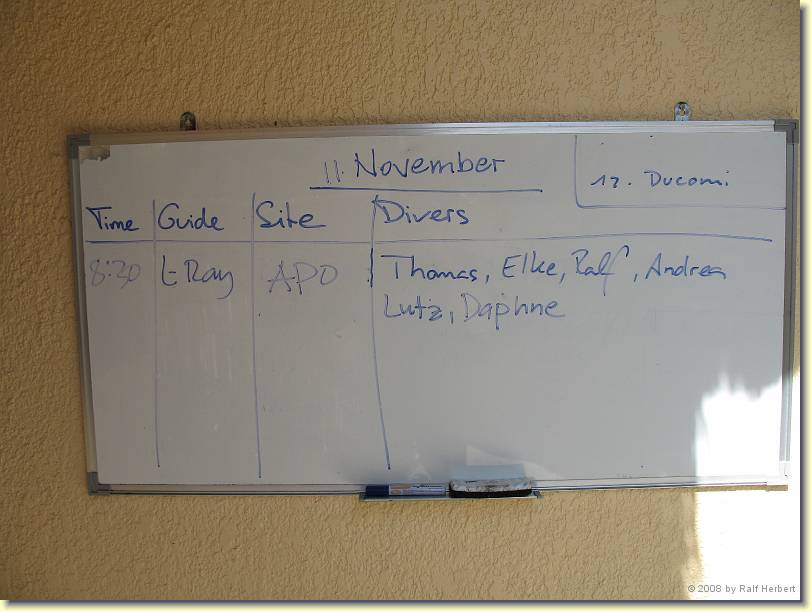 11. November
12. Ducomi
Time Guide Site Divers
8:30 t-Ray APO Thomas, Elke, Ralf, Andrea
Lutz, Daphne
© 2008 by Ralf Herbert